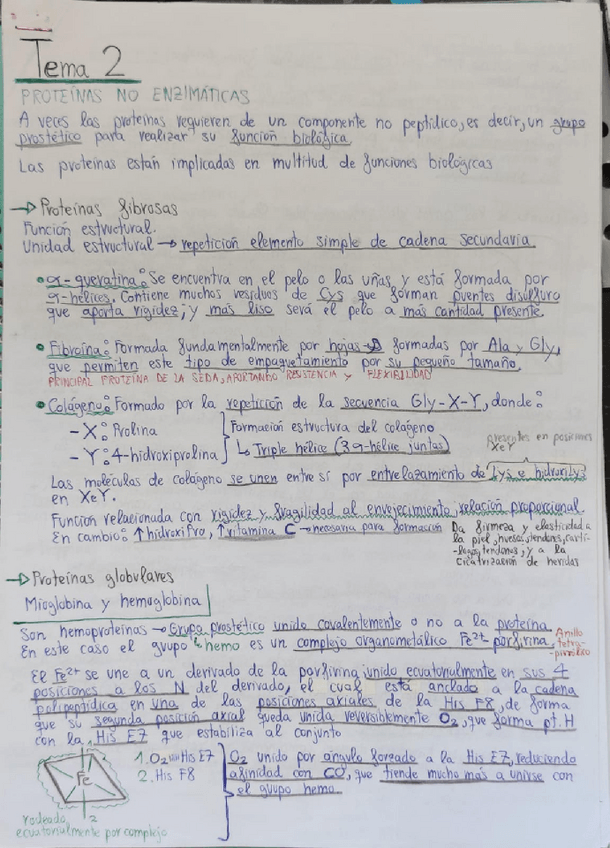 Tema 2
PROTEÍNAS NO ENZIMÁTICAS
A veces las proteínas requieren de un componente no peptídico, es decir, un grupo
prostético para realizar su función biológica
Las proteínas están implicadas en multitud de funciones biológicas
→ Proteínas fibrosas
Función estructural.
Unidad estructural → repetición elemento simple de cadena secundaria
• α-queratina: Se encuentra en el pelo o las uñas y está formada por
α-hélices. Contiene muchos residuos de Cys que forman puentes disulfuro
que aporta rigidez, y más liso será el pelo a más cantidad presente.
• Fibroína: Formada fundamentalmente por hojas-β formadas por Ala y Gly,
que permiten este tipo de empaquetamiento por su pequeño tamaño.
PRINCIPAL PROTEÍNA DE LA SEDA, APORTANDO RESISTENCIA Y FLEXIBILIDAD
• Colágeno: Formado por la repetición de la secuencia Gly-X-Y, donde:
- X: Prolina
- Y: 4-hidroxiprolina
Formación estructura del colágeno
↳ Triple hélice (3 α-hélice juntas)
presentes en posiciones
X e Y
Las moléculas de colágeno se unen entre sí por entrelazamiento de Lys e hidroxiLys
en X e Y.
Función relacionada con rigidez y fragilidad al envejecimiento, relación proporcional.
En cambio: ↑ hidroxiPro, ↑ vitamina C → necesaria para formación
Da firmeza y elasticidad a
la piel, huesos, tendones, cartí-
lagos, tendones, y a la
cicatrización de heridas
→ Proteínas globulares
Mioglobina y hemoglobina
Son hemoproteínas → Grupo prostético unido covalentemente o no a la proteína
En este caso el grupo hemo es un complejo organometálico Fe²⁺ porfirina
Anillo
tetra-
pirrólico
El Fe²⁺ se une a un derivado de la porfirina unido ecuatorialmente en sus 4
posiciones a los N del derivado, el cual está anclado a la cadena
polipeptídica en una de las posiciones axiales de la His F8, de forma
que su segunda posición axial queda unida reversiblemente O₂, que forma pt. H
con la His E7 que estabiliza al conjunto
Fe
2
1. O₂ His E7
2. His F8
rodeado
ecuatorialmente por complejo
O₂ unido por ángulo forzado a la His E7, reduciendo
afinidad con CO, que tiende mucho más a unirse con
el grupo hemo